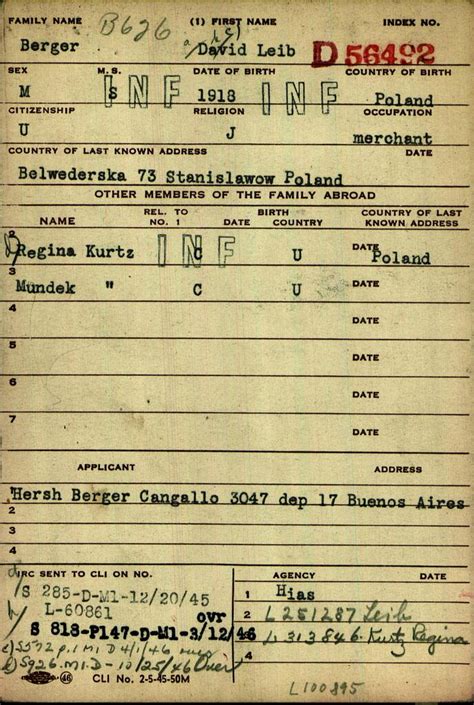 FAMILY NAME B626 (1) FIRST NAME INDEX NO.
Berger David Leib D 56492
SEX M.S. DATE OF BIRTH COUNTRY OF BIRTH
M S INF 1918 INF Poland
CITIZENSHIP RELIGION OCCUPATION
U J merchant
COUNTRY OF LAST KNOWN ADDRESS DATE
Belwederska 73 Stanislawow Poland
OTHER MEMBERS OF THE FAMILY ABROAD
NAME REL. TO NO. 1 BIRTH DATE COUNTRY COUNTRY OF LAST KNOWN ADDRESS
2 Regina Kurtz INF C U DATE Poland
3 Mundek " C U DATE
4 DATE
5 DATE
6 DATE
7 DATE
APPLICANT ADDRESS
Hersh Berger Cangallo 3047 dep 17 Buenos Aires
2
3
4
IRC SENT TO CLI ON NO. AGENCY DATE
S 285-D-M1-12/20/45 1 Hias
L-60861 ovr 2 L251287 Leib
S 818-P147-D-M1-3/12/46 3 L313846 Kurtz Regina
S572 p.1 M1 D 4/1/46 over
S926.M1.D-10/25/46 Over 4
46 CLI No. 2-5-45-50M
L100895